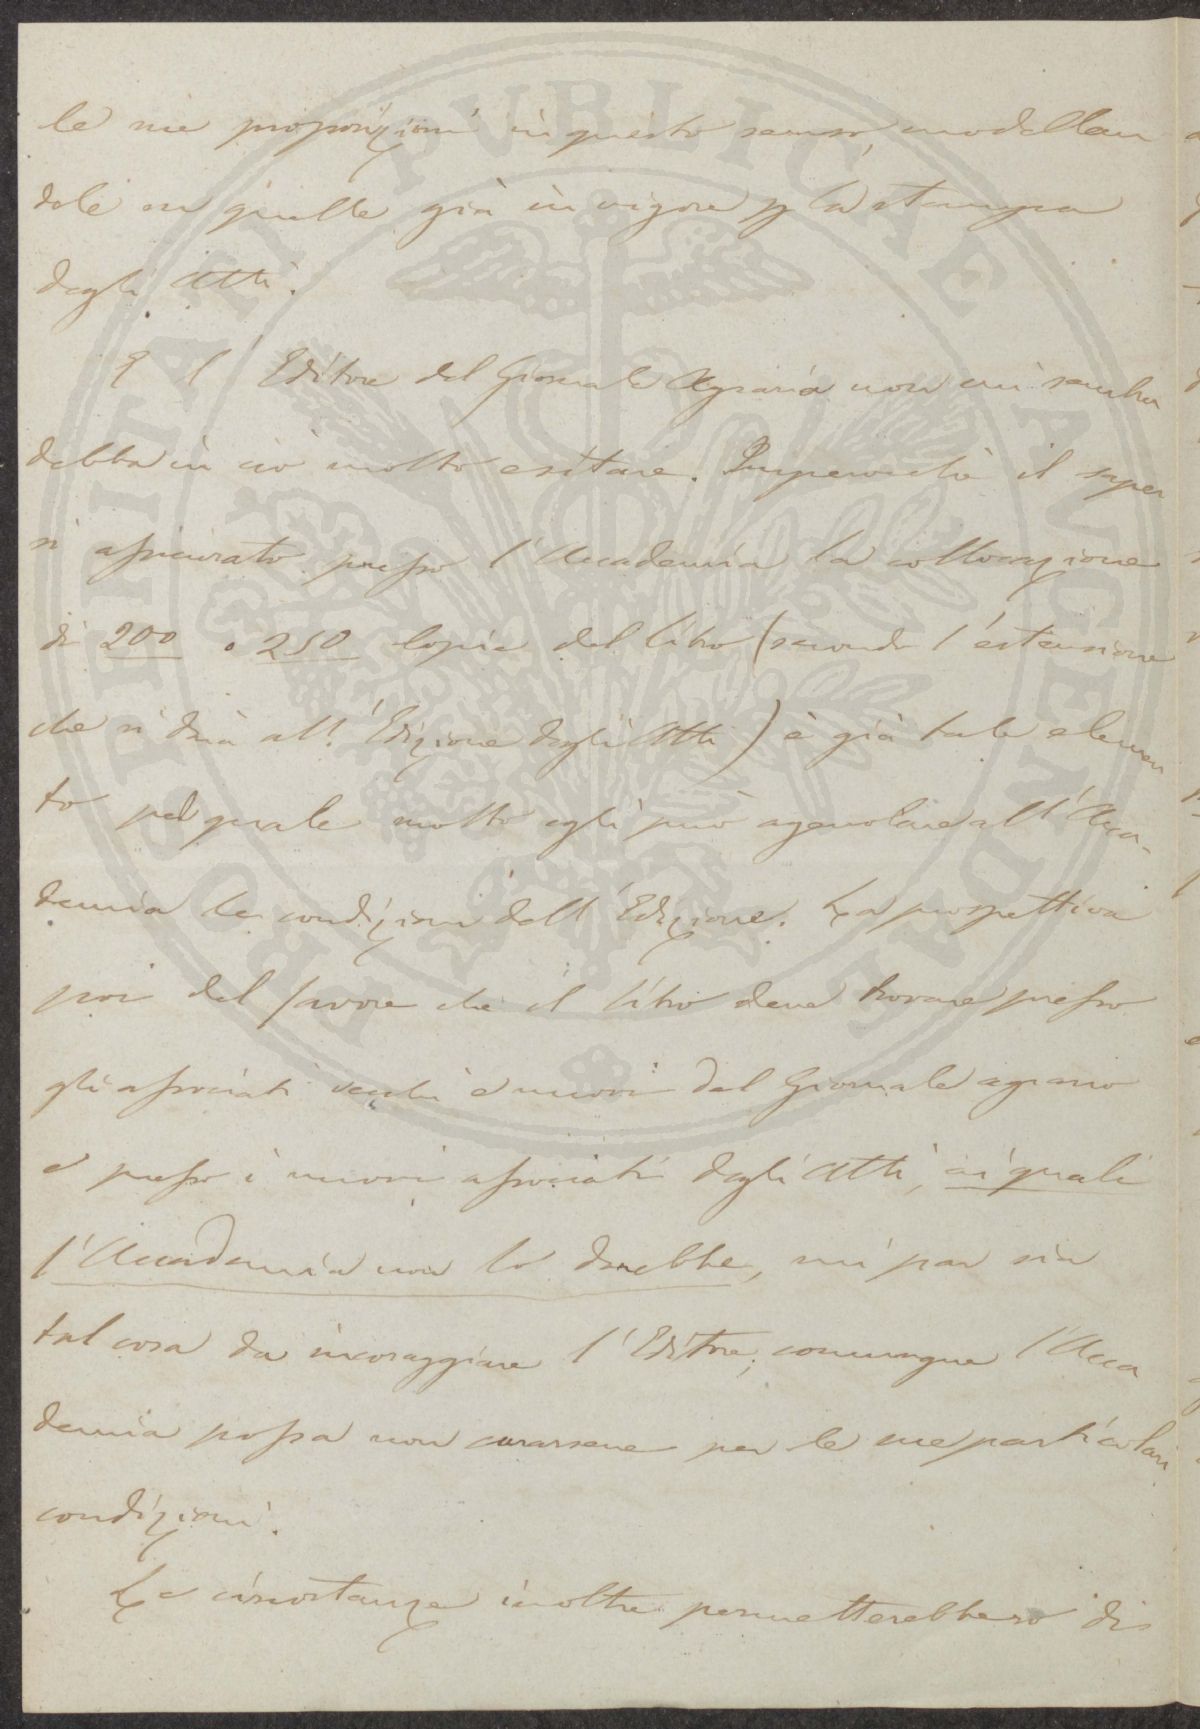 le mie proposizioni in questo senso, modellan
dole su quelle già in vigore p la stampa
degli Atti.
E l'Editore del Giornale Agrario non mi sembra
debba in ciò molto esitare. Imperocchè il saper
si assicurato presso l'Accademia la collocazione
di 200 o 250 Copie del libro (secondo l'estensione
che si darà all'Edizione degli Atti) è già tale elemen
to pel quale molto egli può agevolare all'Acca-
demia le condizioni dell'Edizione. La prospettiva
poi del favore che il libro deve trovare presso
gli associati vecchi e nuovi del Giornale agrario
e presso i nuovi associati degli Atti, ai quali
l'Accademia non lo darebbe, mi par sia
tal cosa da incoraggiare l'Editore; comunque l'Acca
demia possa non curarsene per le sue particolari
condizioni.
Le circostanze inoltre permetterebbero di
PROSPERITATI PUBLICAE AUGENDAE